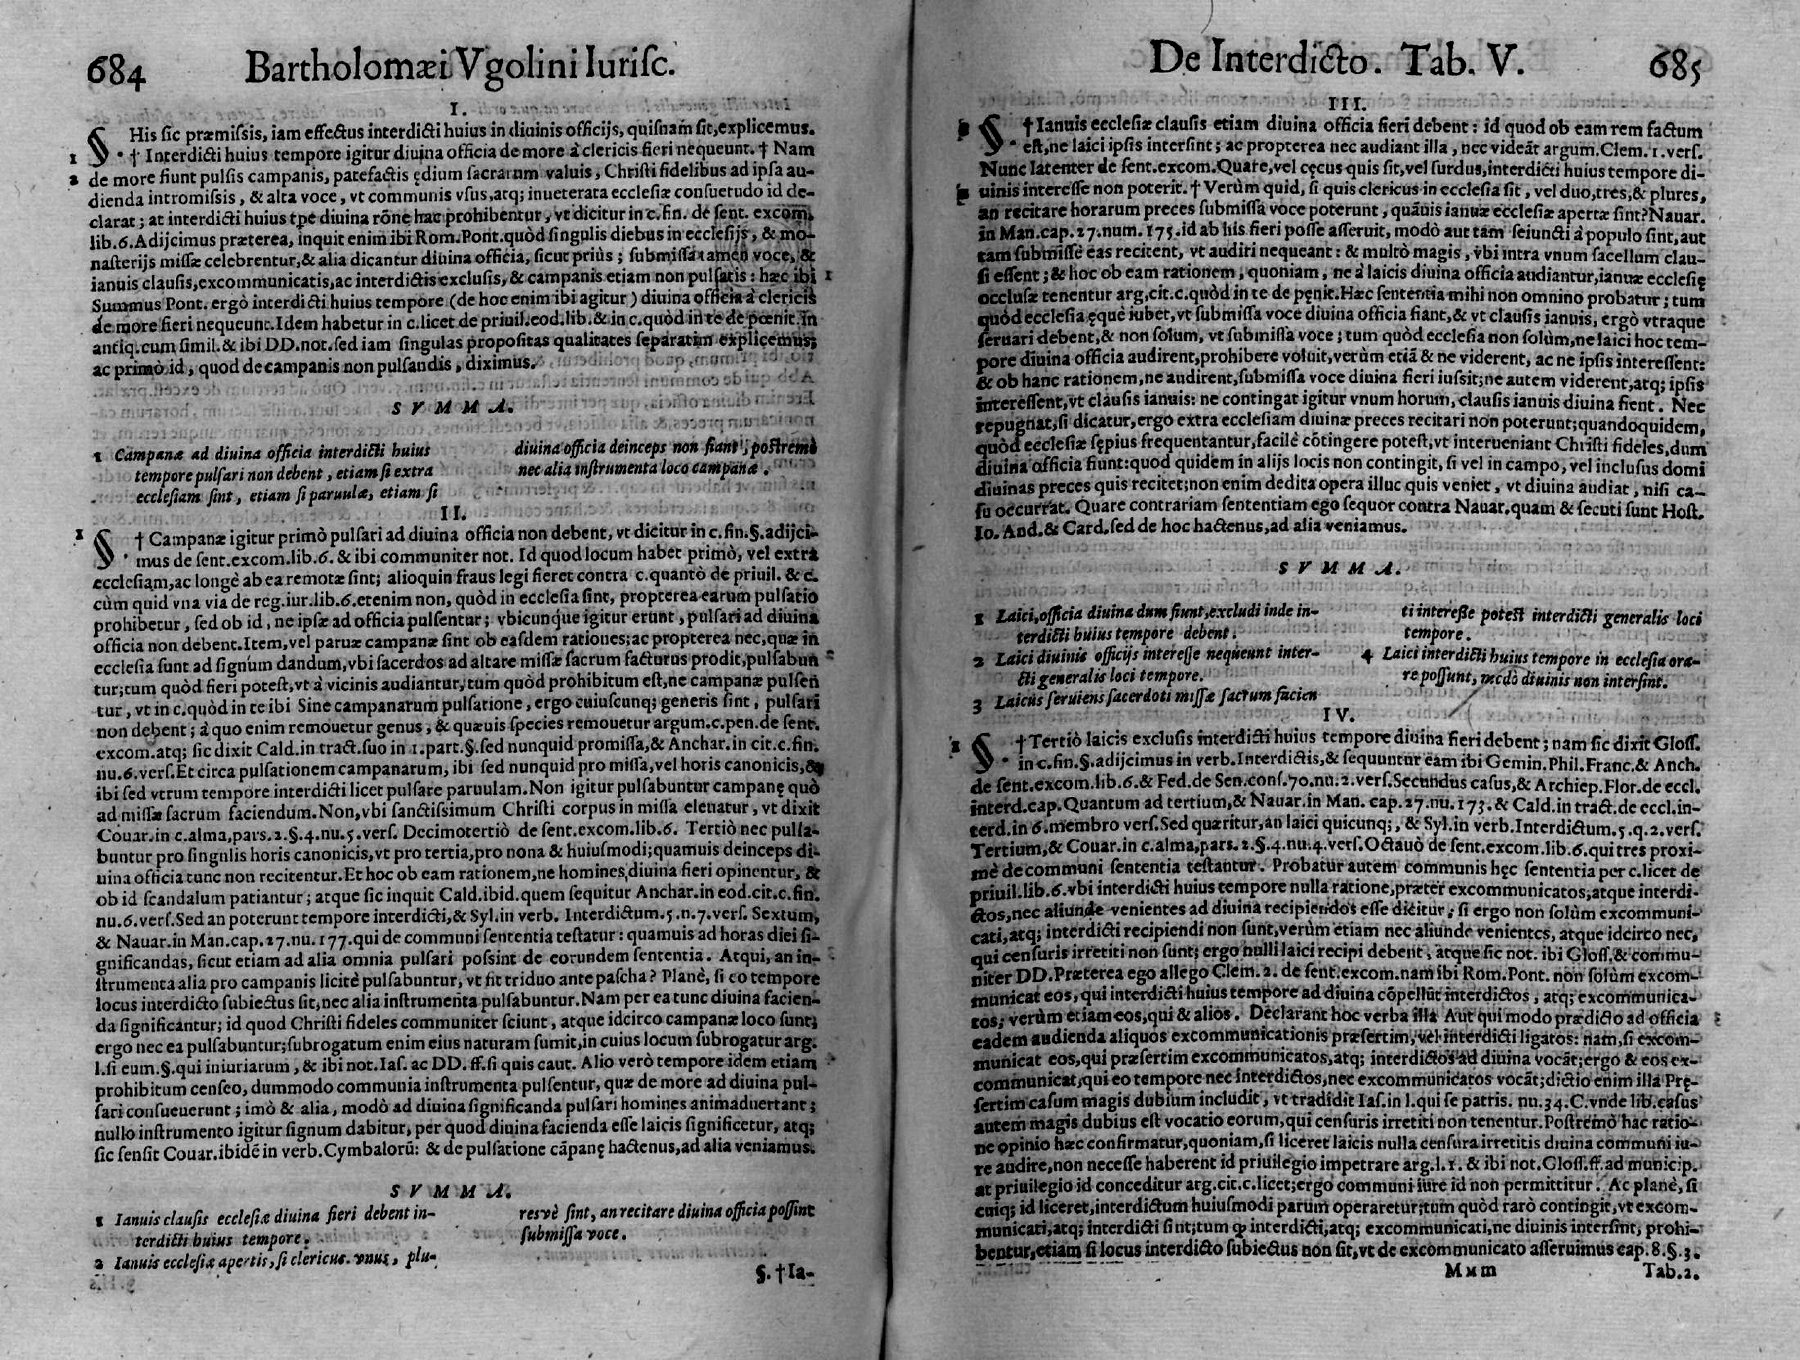 684 Bartholomæi Vgolini Iurisc.
I.
§. His sic præmissis, iam effectus interdicti huius in diuinis officijs, quisnam sit, explicemus.
1 † Interdicti huius tempore igitur diuina officia de more à clericis fieri nequeunt. † Nam
2 de more fiunt pulsis campanis, patefactis ędium sacrarum valuis, Christi fidelibus ad ipsa au-
dienda intromissis, & alta voce, vt communis vsus, atq; inueterata ecclesiæ consuetudo id de-
clarat; at interdicti huius tp̃e diuina rõne hac prohibentur, vt dicitur in c. fin. de sent. excom.
lib. 6. Adijcimus præterea, inquit enim ibi Rom. Pont. quòd singulis diebus in ecclesijs, & mo-
nasterijs missæ celebrentur, & alia dicantur diuina officia, sicut priùs; submissa tamen voce, &
ianuis clausis, excommunicatis, ac interdictis exclusis, & campanis etiam non pulsatis: hæc ibi
Summus Pont. ergò interdicti huius tempore (de hoc enim ibi agitur) diuina officia à clericis
de more fieri nequeunt. Idem habetur in c. licet de priuil. eod. lib. & in c. quòd in te de pœnit. In
antiq. cum simil. & ibi DD. not. sed iam singulas propositas qualitates separatim explicemus;
ac primò id, quod de campanis non pulsandis, diximus.
SVMMA.
1 Campanæ ad diuina officia interdicti huius
tempore pulsari non debent, etiam si extra
ecclesiam sint, etiam si paruulæ, etiam si
diuina officia deinceps non fiant; postremò
nec alia instrumenta loco campanæ.
II.
1 §. † Campanæ igitur primò pulsari ad diuina officia non debent, vt dicitur in c. fin. §. adijci-
mus de sent. excom. lib. 6. & ibi communiter not. Id quod locum habet primò, vel extra
ecclesiam, ac longè ab ea remotæ sint; alioquin fraus legi fieret contra c. quantò de priuil. & c.
cùm quid vna via de reg. iur. lib. 6. etenim non, quòd in ecclesia sint, propterea earum pulsatio
prohibetur, sed ob id, ne ipsæ ad officia pulsentur; vbicunque igitur erunt, pulsari ad diuina
officia non debent. Item, vel paruæ campanæ sint ob easdem rationes; ac propterea nec, quæ in
ecclesia sunt ad signum dandum, vbi sacerdos ad altare missæ sacrum facturus prodit, pulsabun
tur; tum quòd fieri potest, vt à vicinis audiantur, tum quòd prohibitum est, ne campanæ pulsen
tur, vt in c. quòd in te ibi Sine campanarum pulsatione, ergo cuiuscunq; generis sint, pulsari
non debent; à quo enim remouetur genus, & quæuis species remouetur argum. c. pen. de sent.
excom. atq; sic dixit Cald. in tract. suo in 1. part. §. sed nunquid promissa, & Anchar. in cit. c. fin.
nu. 6. vers. Et circa pulsationem campanarum, ibi sed nunquid pro missa, vel horis canonicis, &
ibi sed vtrum tempore interdicti licet pulsare paruulam. Non igitur pulsabuntur campanę quò
ad missæ sacrum faciendum. Non, vbi sanctissimum Christi corpus in missa eleuatur, vt dixit
Couar. in c. alma, pars. 2. §. 4. nu. 5. vers. Decimotertiò de sent. excom. lib. 6. Tertiò nec pulsa-
buntur pro singulis horis canonicis, vt pro tertia, pro nona & huiusmodi; quamuis deinceps di-
uina officia tunc non recitentur. Et hoc ob eam rationem, ne homines, diuina fieri opinentur, &
ob id scandalum patiantur; atque sic inquit Cald. ibid. quem sequitur Anchar. in eod. cit. c. fin.
nu. 6. vers. Sed an poterunt tempore interdicti, & Syl. in verb. Interdictum. 5. n. 7. vers. Sextum,
& Nauar. in Man. cap. 27. nu. 177. qui de communi sententia testatur: quamuis ad horas diei si-
gnificandas, sicut etiam ad alia omnia pulsari possint de eorundem sententia. Atqui, an in-
strumenta alia pro campanis licitè pulsabuntur, vt fit triduo ante pascha? Planè, si eo tempore
locus interdicto subiectus sit, nec alia instrumenta pulsabuntur. Nam per ea tunc diuina facien-
da significantur; id quod Christi fideles communiter sciunt, atque idcirco campanæ loco sunt;
ergo nec ea pulsabuntur; subrogatum enim eius naturam sumit, in cuius locum subrogatur arg.
l. si eum. §. qui iniuriarum, & ibi not. Ias. ac DD. ff. si quis caut. Alio verò tempore idem etiam
prohibitum censeo, dummodo communia instrumenta pulsentur, quæ de more ad diuina pul-
sari consueuerunt; imò & alia, modò ad diuina significanda pulsari homines animaduertant;
nullo instrumento igitur signum dabitur, per quod diuina facienda esse laicis significetur, atq;
sic sensit Couar. ibidẽ in verb. Cymbalorũ: & de pulsatione cãpanę hactenus, ad alia veniamus.
SVMMA.
1 Ianuis clausis ecclesiæ diuina fieri debent in-
terdicti huius tempore.
2 Ianuis ecclesiæ apertis, si clericus vnus, plu-
resvè sint, an recitare diuina officia possint
submissa voce.
§. † Ia-
De Interdicto. Tab. V. 685
III.
§. † Ianuis ecclesiæ clausis etiam diuina officia fieri debent: id quod ob eam rem factum
est, ne laici ipsis intersint; ac propterea nec audiant illa, nec videãt argum. Clem. 1. vers.
Nunc latenter de sent. excom. Quare, vel cęcus quis sit, vel surdus, interdicti huius tempore di-
uinis interesse non poterit. † Verùm quid, si quis clericus in ecclesia sit, vel duo, tres, & plures,
an recitare horarum preces submissa voce poterunt, quãuis ianuæ ecclesiæ apertæ sint? Nauar.
in Man. cap. 27. num. 175. id ab his fieri posse asseruit, modò aut tàm seiuncti à populo sint, aut
tam submissè eas recitent, vt audiri nequeant: & multò magis, vbi intra vnum sacellum clau-
si essent; & hoc ob eam rationem, quoniam, ne à laicis diuina officia audiantur, ianuæ ecclesię
occlusæ tenentur arg. cit. c. quòd in te de pęnit. Hæc sententia mihi non omnino probatur; tum
quòd ecclesia ęquè iubet, vt submissa voce diuina officia fiant, & vt clausis ianuis, ergò vtraque
seruari debent, & non solùm, vt submissa voce; tum quòd ecclesia non solùm, ne laici hoc tem-
pore diuina officia audirent, prohibere voluit, verùm etiã & ne viderent, ac ne ipsis interessent:
& ob hanc rationem, ne audirent, submissa voce diuina fieri iussit; ne autem viderent, atq; ipsis
interessent, vt clausis ianuis: ne contingat igitur vnum horum, clausis ianuis diuina fient. Nec
repugnat, si dicatur, ergo extra ecclesiam diuinæ preces recitari non poterunt; quandoquidem,
quòd ecclesiæ sępius frequentantur, facilè cõtingere potest, vt interueniant Christi fideles, dum
diuina officia fiunt: quod quidem in alijs locis non contingit, si vel in campo, vel inclusus domi
diuinas preces quis recitet; non enim dedita opera illuc quis veniet, vt diuina audiat, nisi ca-
su occurrat. Quare contrariam sententiam ego sequor contra Nauar. quam & secuti sunt Host.
Io. And. & Card. sed de hoc hactenus, ad alia veniamus.
SVMMA.
1 Laici, officia diuina dum fiunt, excludi inde in-
terdicti huius tempore debent.
2 Laici diuinis officijs interesse nequeunt inter-
cti generalis loci tempore.
3 Laicus seruiens sacerdoti missæ sacrum facien
ti interesse potest interdicti generalis loci
tempore.
4 Laici interdicti huius tempore in ecclesia ora-
re possunt, modò diuinis non intersint.
IV.
1 §. † Tertiò laicis exclusis interdicti huius tempore diuina fieri debent; nam sic dixit Gloss.
in c. fin. §. adijcimus in verb. Interdictis, & sequuntur eam ibi Gemin. Phil. Franc. & Anch.
de sent. excom. lib. 6. & Fed. de Sen. cons. 70. nu. 2. vers. Secundus casus, & Archiep. Flor. de eccl.
interd. cap. Quantum ad tertium, & Nauar. in Man. cap. 27. nu. 173. & Cald. in tract. de eccl. in-
terd. in 6. membro vers. Sed quæritur, an laici quicunq;, & Syl. in verb. Interdictum. 5. q. 2. vers.
Tertium, & Couar. in c. alma, pars. 2. §. 4. nu. 4. vers. Octauò de sent. excom. lib. 6. qui tres proxi-
mè de communi sententia testantur. Probatur autem communis hęc sententia per c. licet de
priuil. lib. 6. vbi interdicti huius tempore nulla ratione, præter excommunicatos, atque interdi-
ctos, nec aliunde venientes ad diuina recipiendos esse dicitur; si ergo non solùm excommuni-
cati, atq; interdicti recipiendi non sunt, verùm etiam nec aliunde venientes, atque idcirco nec,
qui censuris irretiti non sunt; ergo nulli laici recipi debent, atque sic not. ibi Gloss. & commu-
niter DD. Præterea ego allego Clem. 2. de sent. excom. nam ibi Rom. Pont. non solùm excom-
municat eos, qui interdicti huius tempore ad diuina cõpellũt interdictos, atq; excommunica-
tos; verùm etiam eos, qui & alios. Declarant hoc verba illa Aut qui modo prædicto ad officia
eadem audienda aliquos excommunicationis præsertim, vel interdicti ligatos: nam, si excom-
municat eos, qui præsertim excommunicatos, atq; interdictos ad diuina vocãt; ergo & eos ex-
communicat, qui eo tempore nec interdictos, nec excommunicatos vocãt; dictio enim illa Prę-
sertim casum magis dubium includit, vt tradidit Ias. in l. qui se patris. nu. 34. C. vnde lib. casus
autem magis dubius est vocatio eorum, qui censuris irretiti non tenentur. Postremò hac ratio-
ne opinio hæc confirmatur, quoniam, si liceret laicis nulla censura irretitis diuina communi iu-
re audire, non necesse haberent id priuilegio impetrare arg. l. 1. & ibi not. Gloss. ff. ad municip.
at priuilegio id conceditur arg. cit. c. licet; ergo communi iure id non permittitur. Ac planè, si
cuiq; id liceret, interdictum huiusmodi parum operaretur; tum quòd rarò contingit, vt excom-
municati, atq; interdicti sint; tum ꝙ interdicti, atq; excommunicati, ne diuinis intersint, prohi-
bentur, etiam si locus interdicto subiectus non sit, vt de excommunicato asseruimus cap. 8. §. 3.
Mmm Tab. 2.